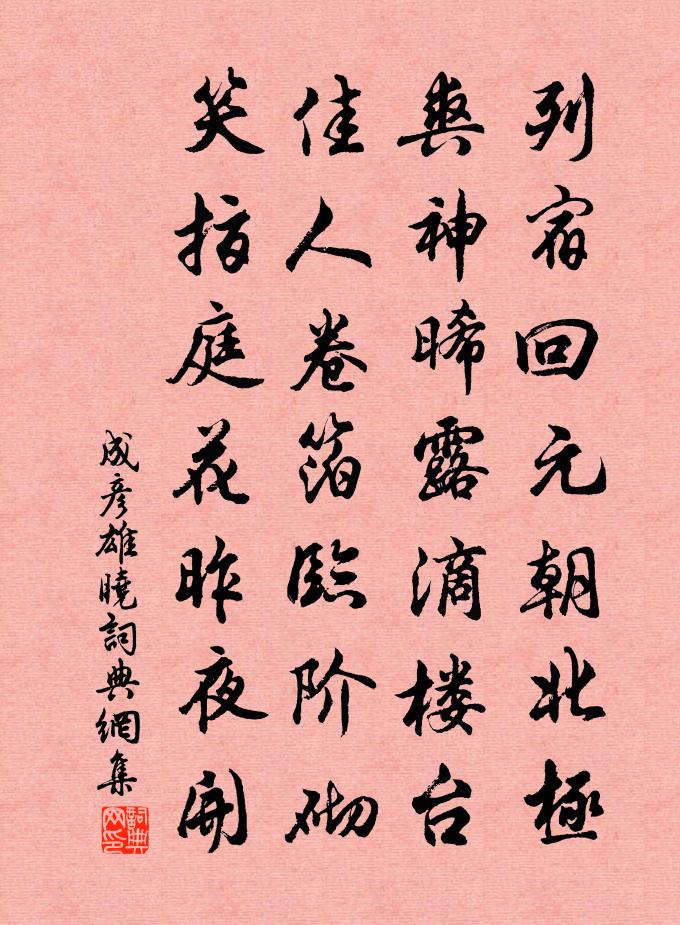 列宿回元朝北極
爽神晞露滴楼台
佳人卷箔臨阶砌
笑指庭花昨夜開
成彦雄曉詞典網集
詞典网印